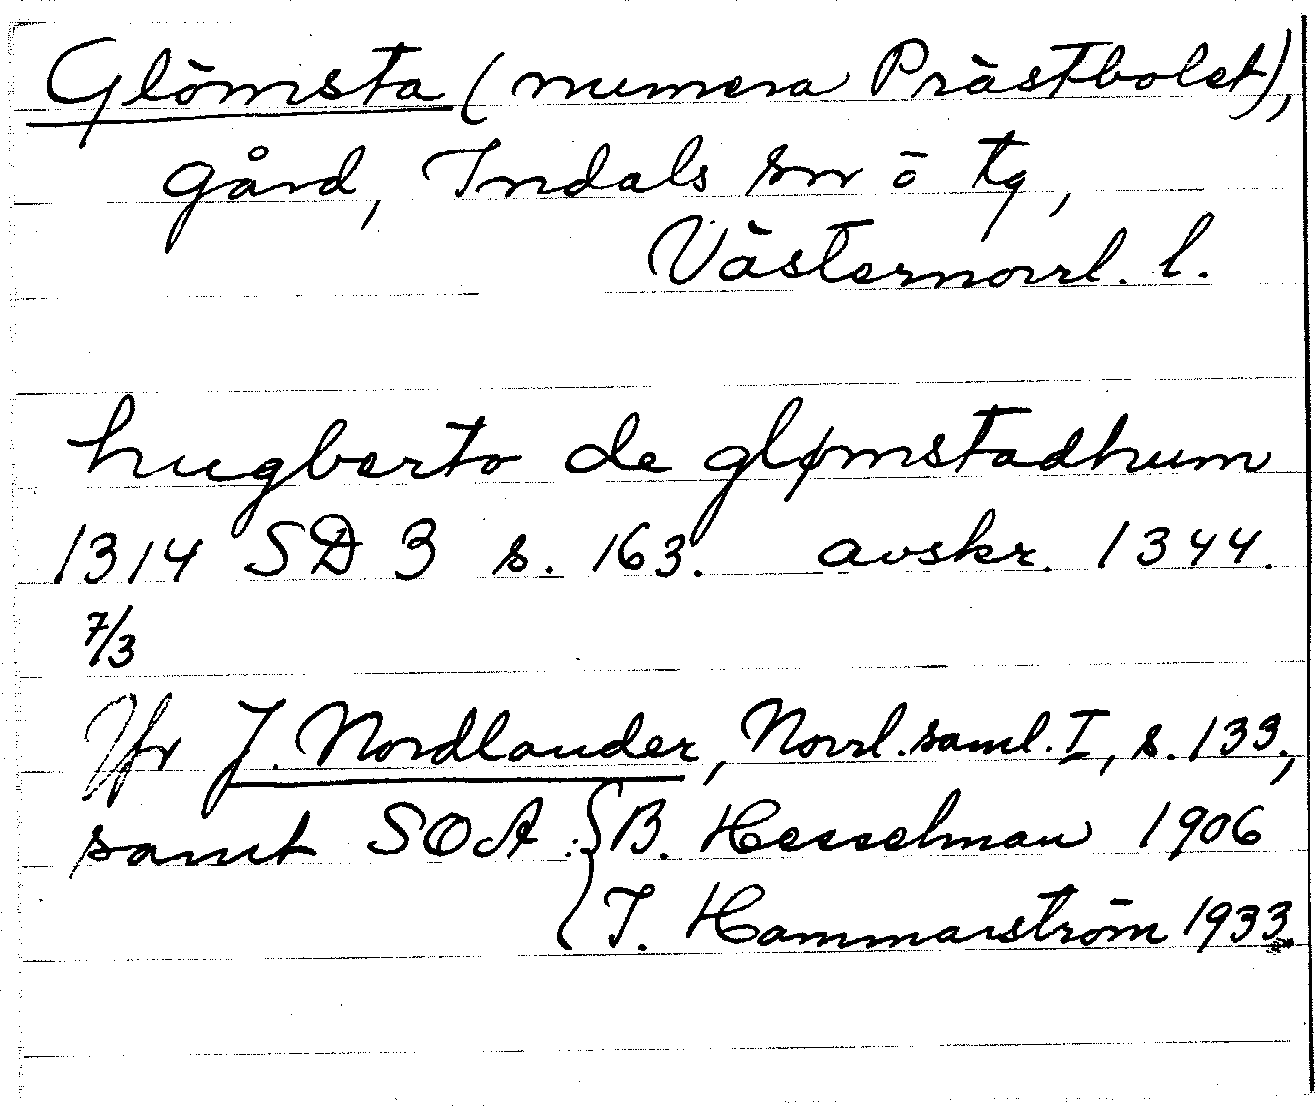 Glömsta (numera Prästbolet),
gård, Indals sn o tg,
Västernorrl. l.
hugberto de glømstadhum
1314 SD 3 s. 163. avskr. 1344.
7/3
Jfr J. Nordlander, Norrl. saml. I, s. 133,
samt SOA : { B. Hesselman 1906
{ I. Hammarström 1933.